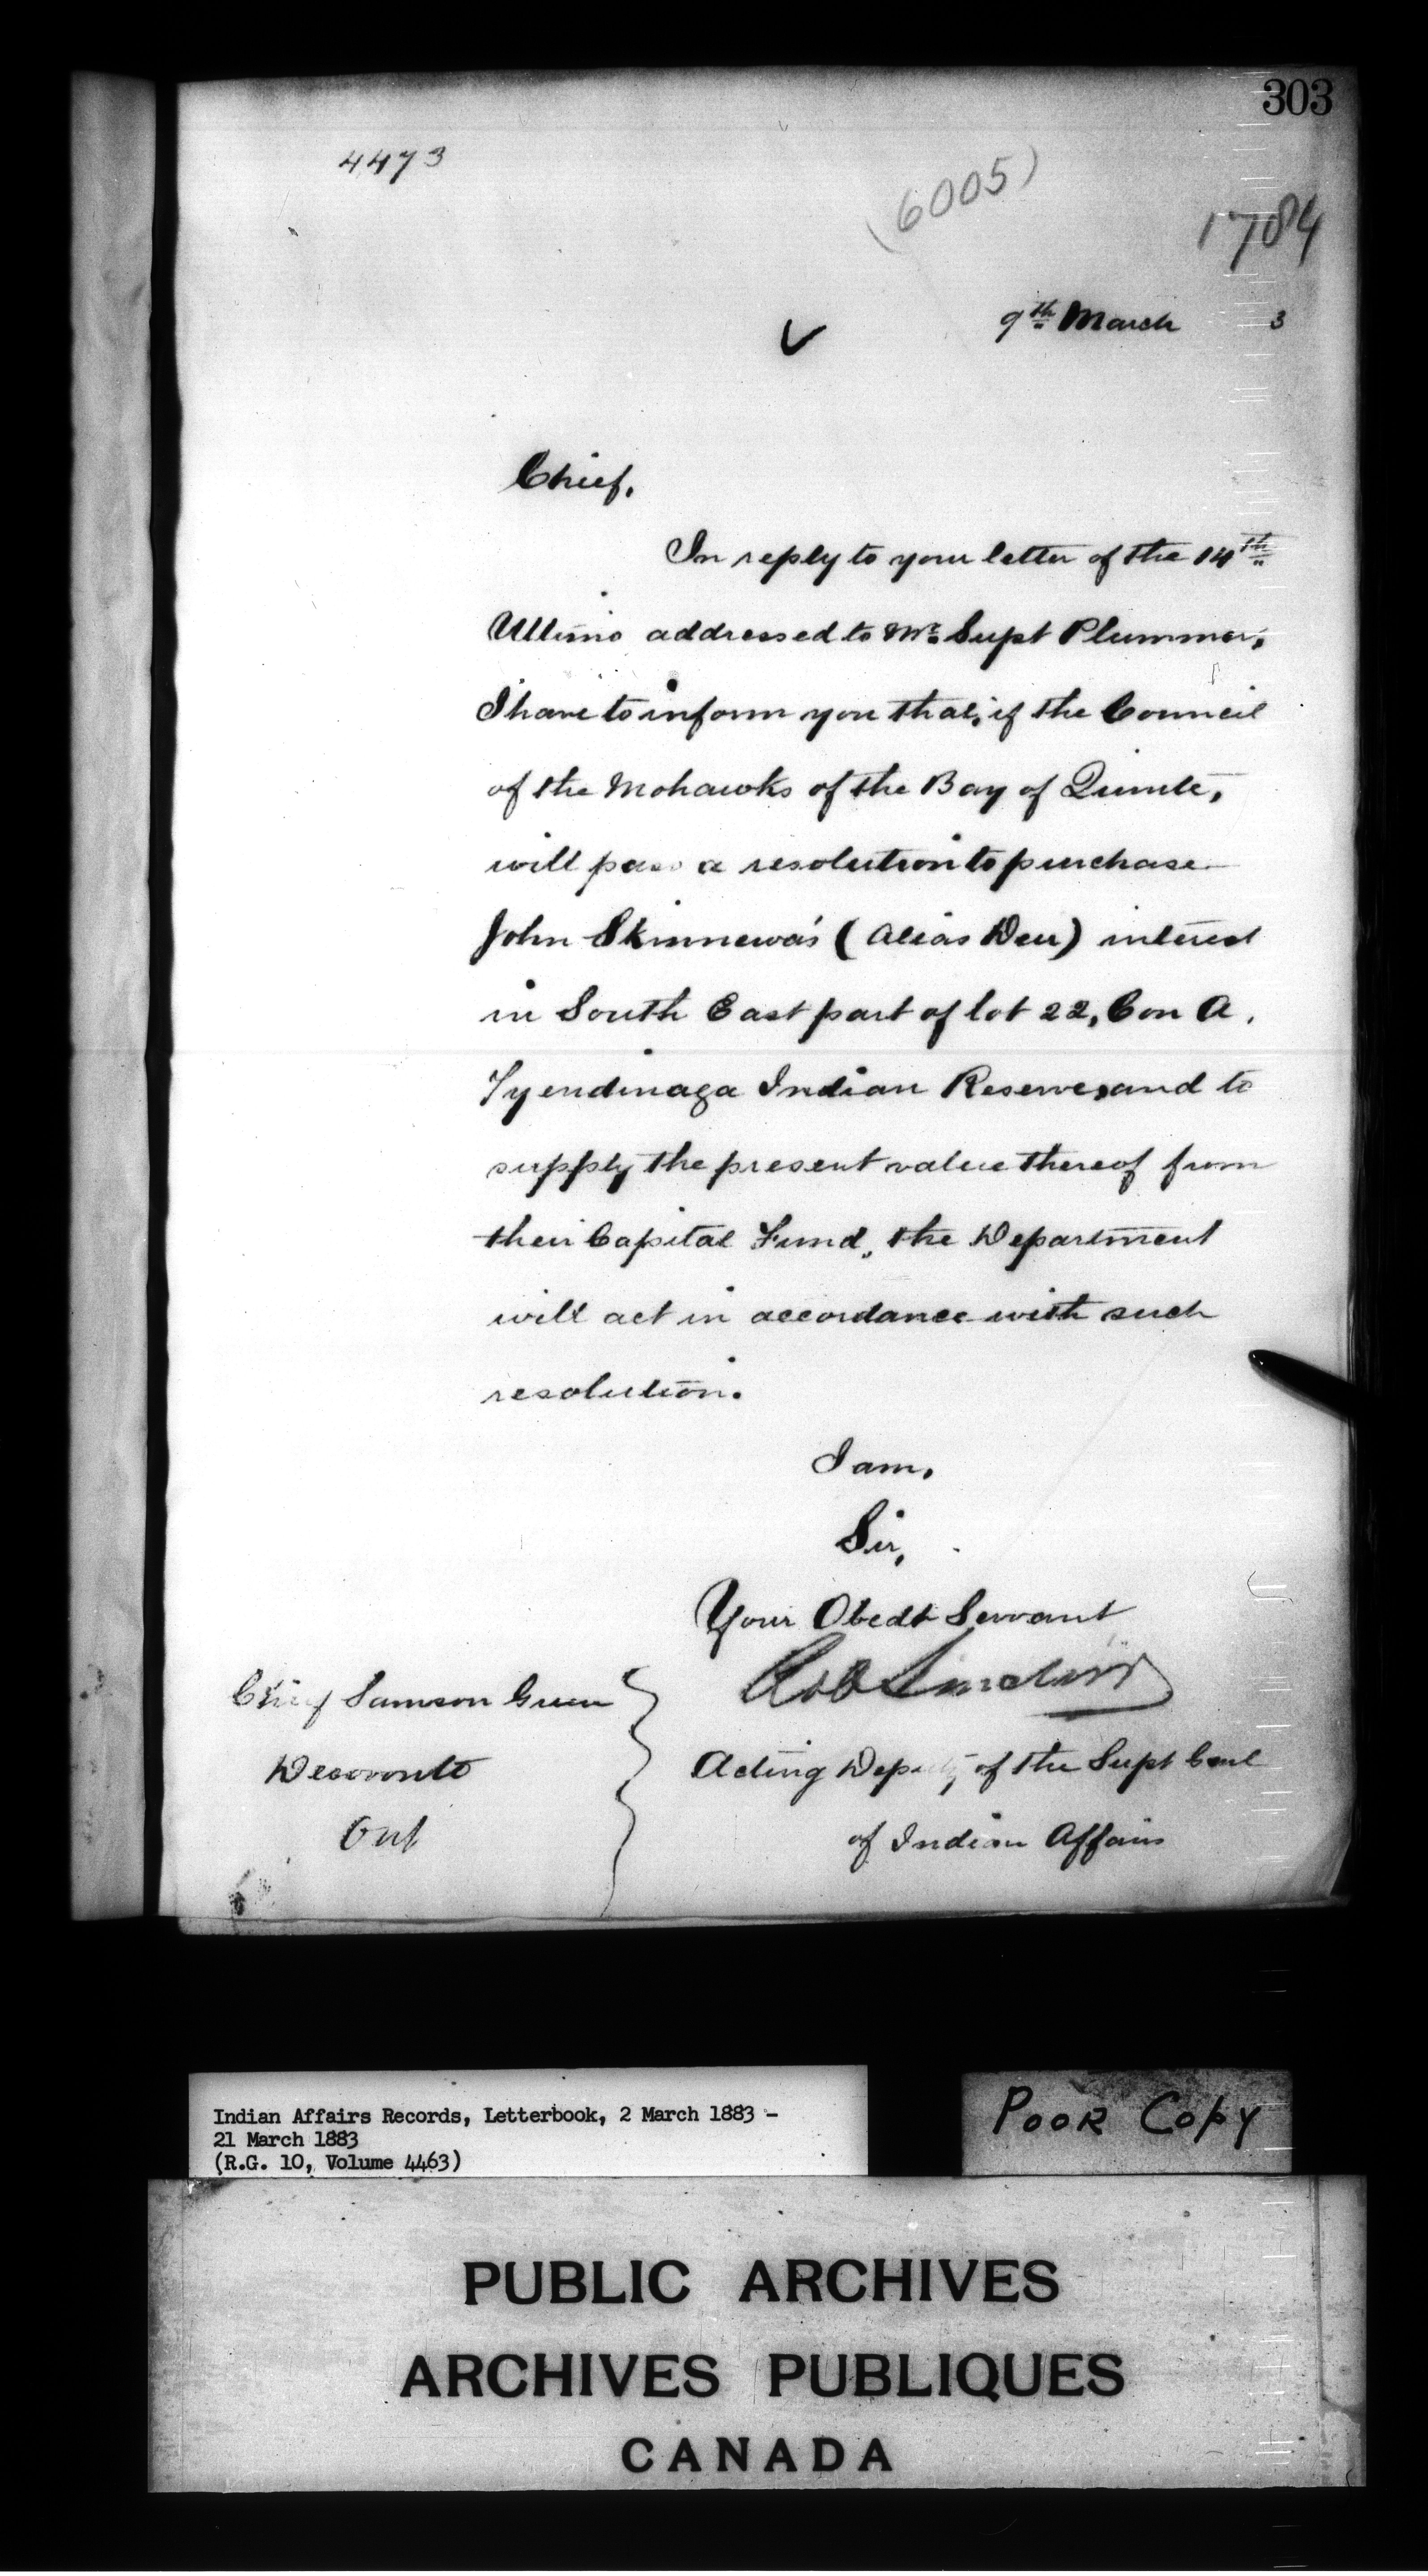 303
4473
(6005)
1784
9th March 3
Chief,
In reply to your letter of the 14th
Ultimo addressed to Mr. Supt Plummer,
I have to inform you that, if the Council
of the Mohawks of the Bay of Quinte,
will pass a resolution to purchase
John Skinnewa's (Alias Deer) interest
in South East part of lot 22, Con A,
Tyendinaga Indian Reserve, and to
supply the present value thereof from
their Capital Fund, the Department
will act in accordance with such
resolution.
I am,
Sir,
Your Obedt Servant
Rob Sinclair
Chief Samson Green
Deseronto
Ont
Acting Deputy of the Supt Genl
of Indian Affairs
Indian Affairs Records, Letterbook, 2 March 1883 -
21 March 1883
(R.G. 10, Volume 4463)
POOR COPY
PUBLIC ARCHIVES
ARCHIVES PUBLIQUES
CANADA